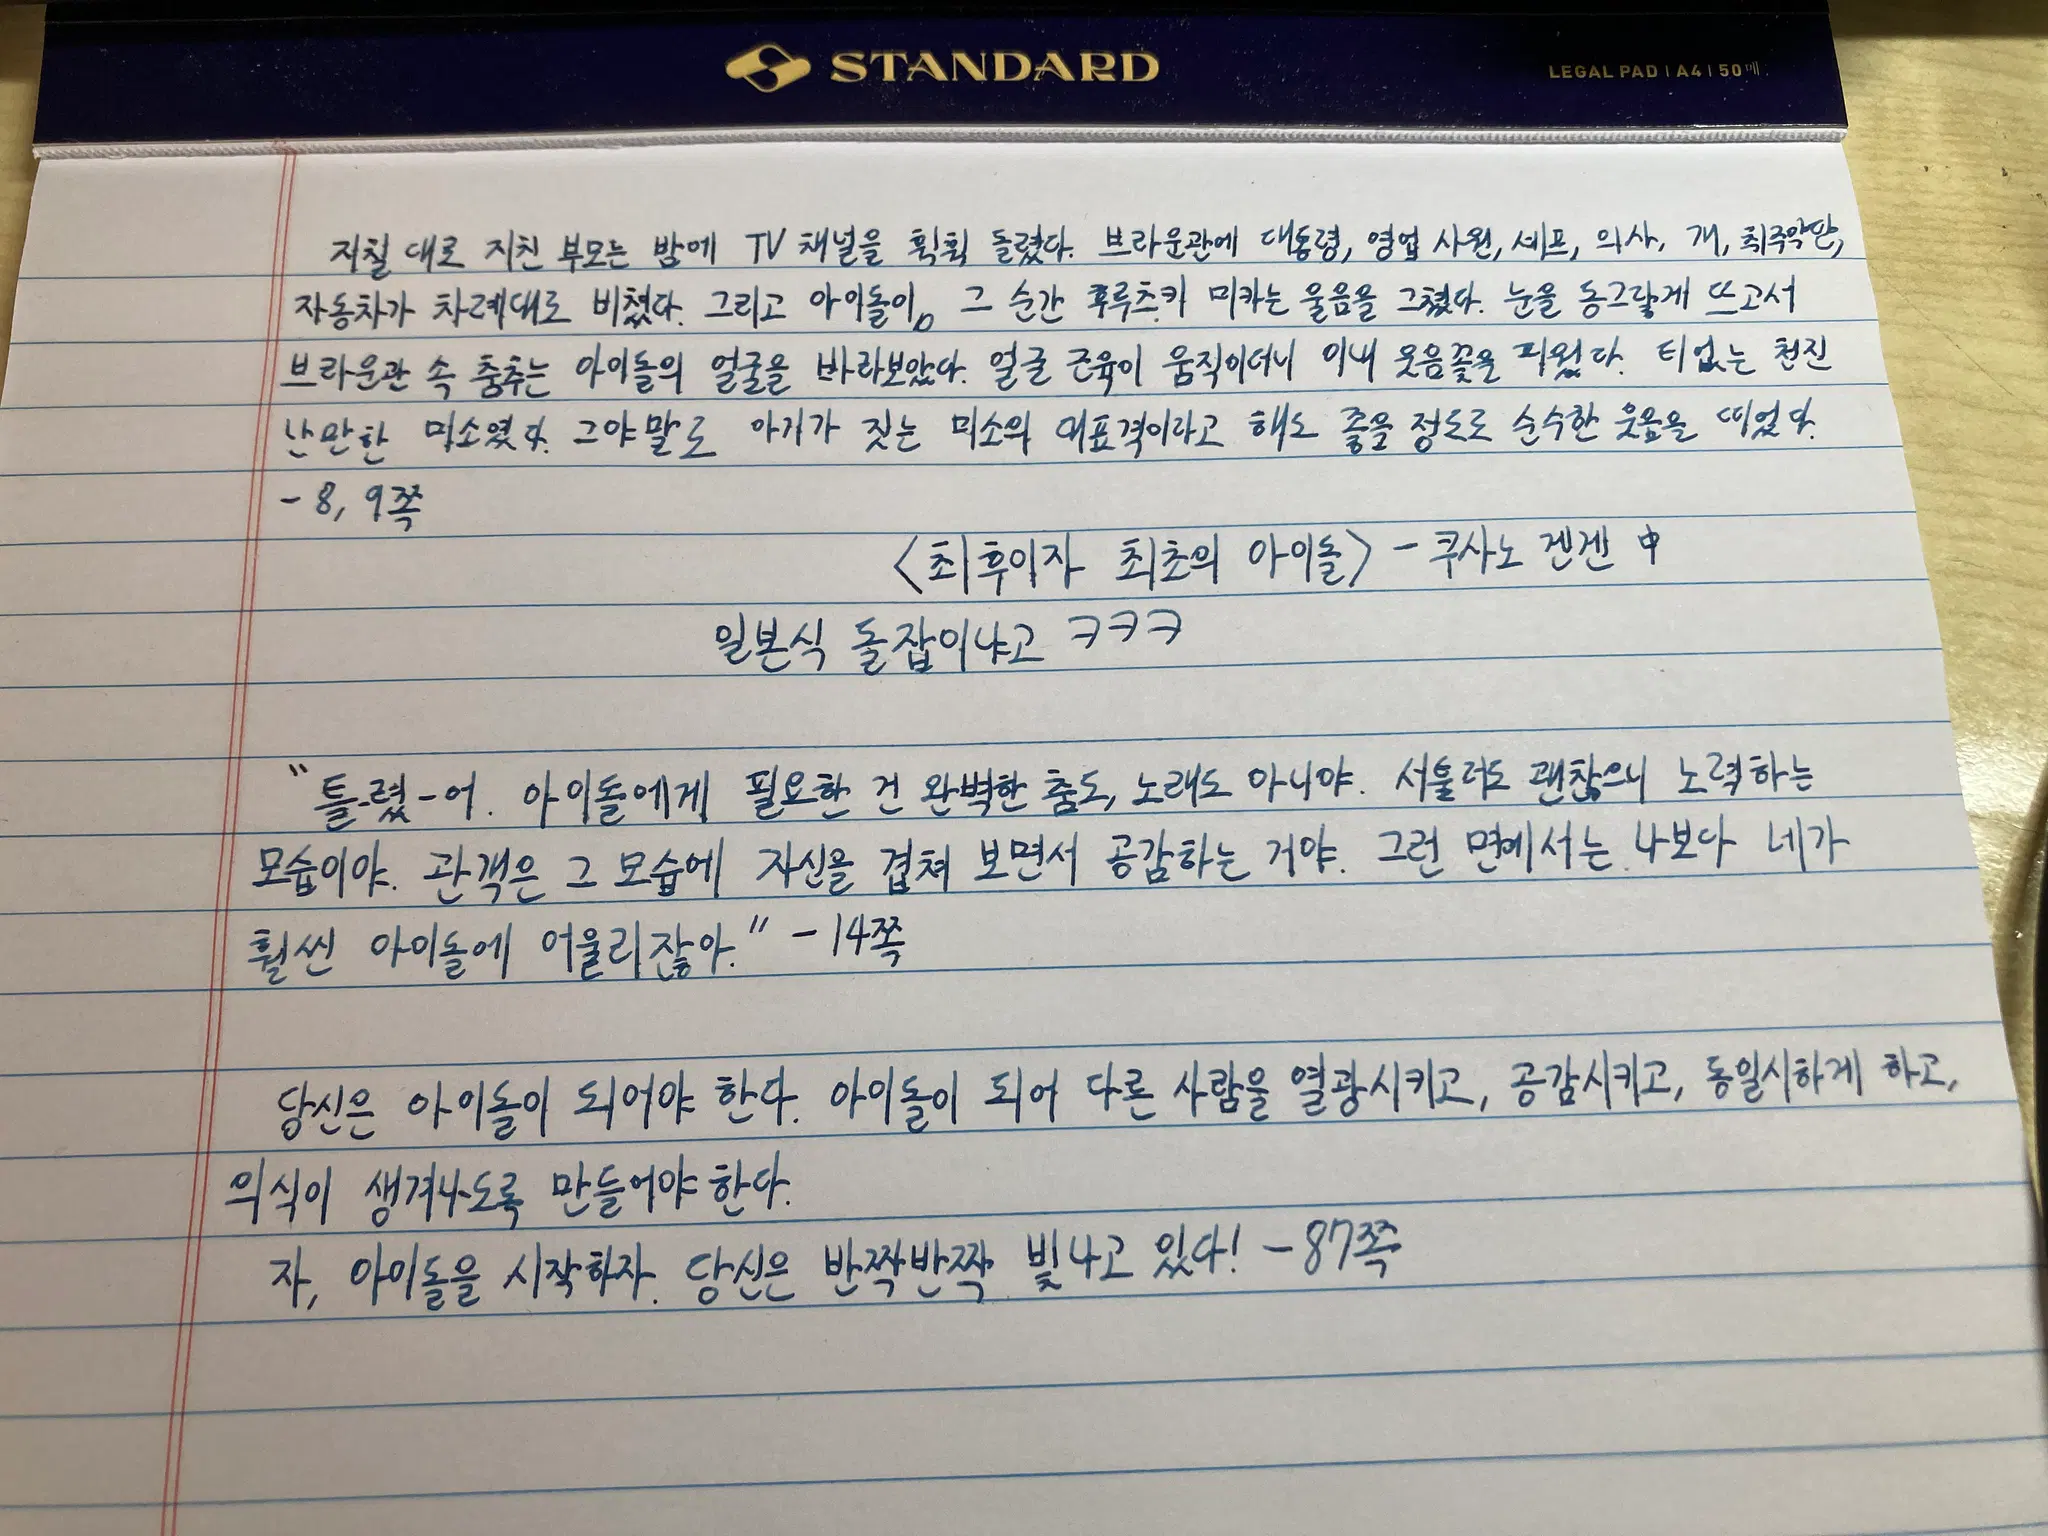 STANDARD
LEGAL PAD | A4 | 50매
지칠 대로 지친 부모는 밤에 TV 채널을 휙휙 돌렸다. 브라운관에 대통령, 영업 사원, 셰프, 의사, 개, 취주악단,
자동차가 차례대로 비쳤다. 그리고 아이돌이. 그 순간 후루츠키 미카는 울음을 그쳤다. 눈을 동그랗게 뜨고서
브라운관 속 춤추는 아이돌의 얼굴을 바라보았다. 얼굴 근육이 움직이더니 이내 웃음꽃을 피웠다. 티없는 천진
난만한 미소였다. 그야말로 아기가 짓는 미소의 대표격이라고 해도 좋을 정도로 순수한 웃음을 띠었다.
- 8, 9쪽
<최후이자 최초의 아이돌> - 쿠사노 겐겐 中
일본식 돌잡이냐고 ㅋㅋㅋ
"틀-렸-어. 아이돌에게 필요한 건 완벽한 춤도, 노래도 아니야. 서툴러도 괜찮으니 노력하는
모습이야. 관객은 그 모습에 자신을 겹쳐 보면서 공감하는 거야. 그런 면에서는 나보다 네가
훨씬 아이돌에 어울리잖아." - 14쪽
당신은 아이돌이 되어야 한다. 아이돌이 되어 다른 사람을 열광시키고, 공감시키고, 동일시하게 하고,
의식이 생겨나도록 만들어야 한다.
자, 아이돌을 시작하자. 당신은 반짝반짝 빛나고 있다! - 87쪽